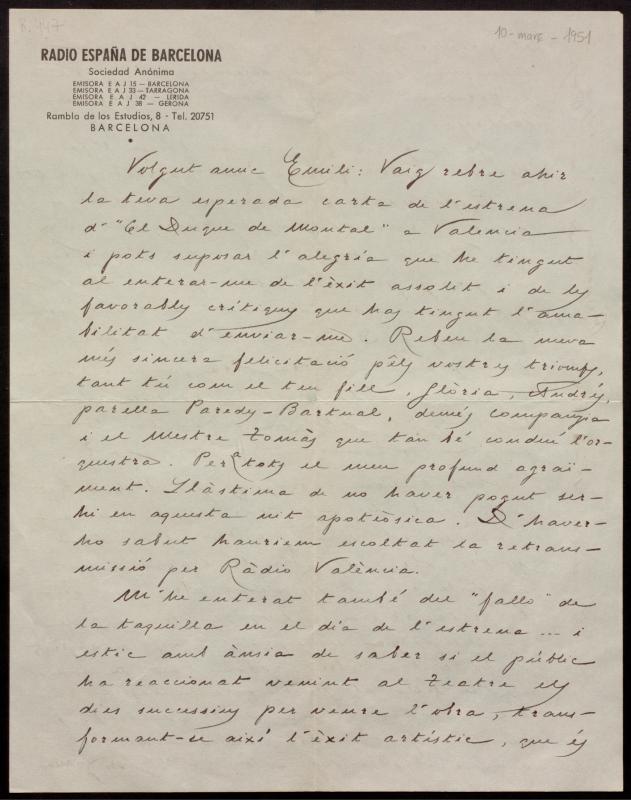 R. 447
10 - març - 1951
RADIO ESPAÑA DE BARCELONA
Sociedad Anónima
EMISORA E A J 15 — BARCELONA
EMISORA E A J 33 — TARRAGONA
EMISORA E A J 42 — LERIDA
EMISORA E A J 38 — GERONA
Rambla de los Estudios, 8 - Tel. 20751
BARCELONA
Volgut amic Emili: Vaig rebre ahir
la teva esperada carta de l'estrena
d' "El Duque de Montal" a Valencia
i pots suposar l'alegría que he tingut
al enterar-me de l'èxit assolit i de les
favorables crítiques que has tingut l'ama-
bilitat d'enviar-me. Rebeu la meva
més sincera felicitació pêls vostres triomfs,
tant tú com el teu fill, Glòria, Andrés,
parella Paredes-Bartual, demés companyia
i el Mestre Tomàs que tan bé conduí l'or-
questra. Per a tots el meu profund agraï-
ment. Llàstima de no haver pogut ser-
hi en aquesta nit apoteòsica. D'haver-
ho sabut hauriem escoltat la retrans-
missió per Ràdio València.
M'he enterat també del "fallo" de
la taquilla en el día de l'estrena ... i
estic amb ànsia de saber si el públic
ha reaccionat venint al Teatre els
dies successius per veure l'obra, trans-
formant-se així l'èxit artístic, que és